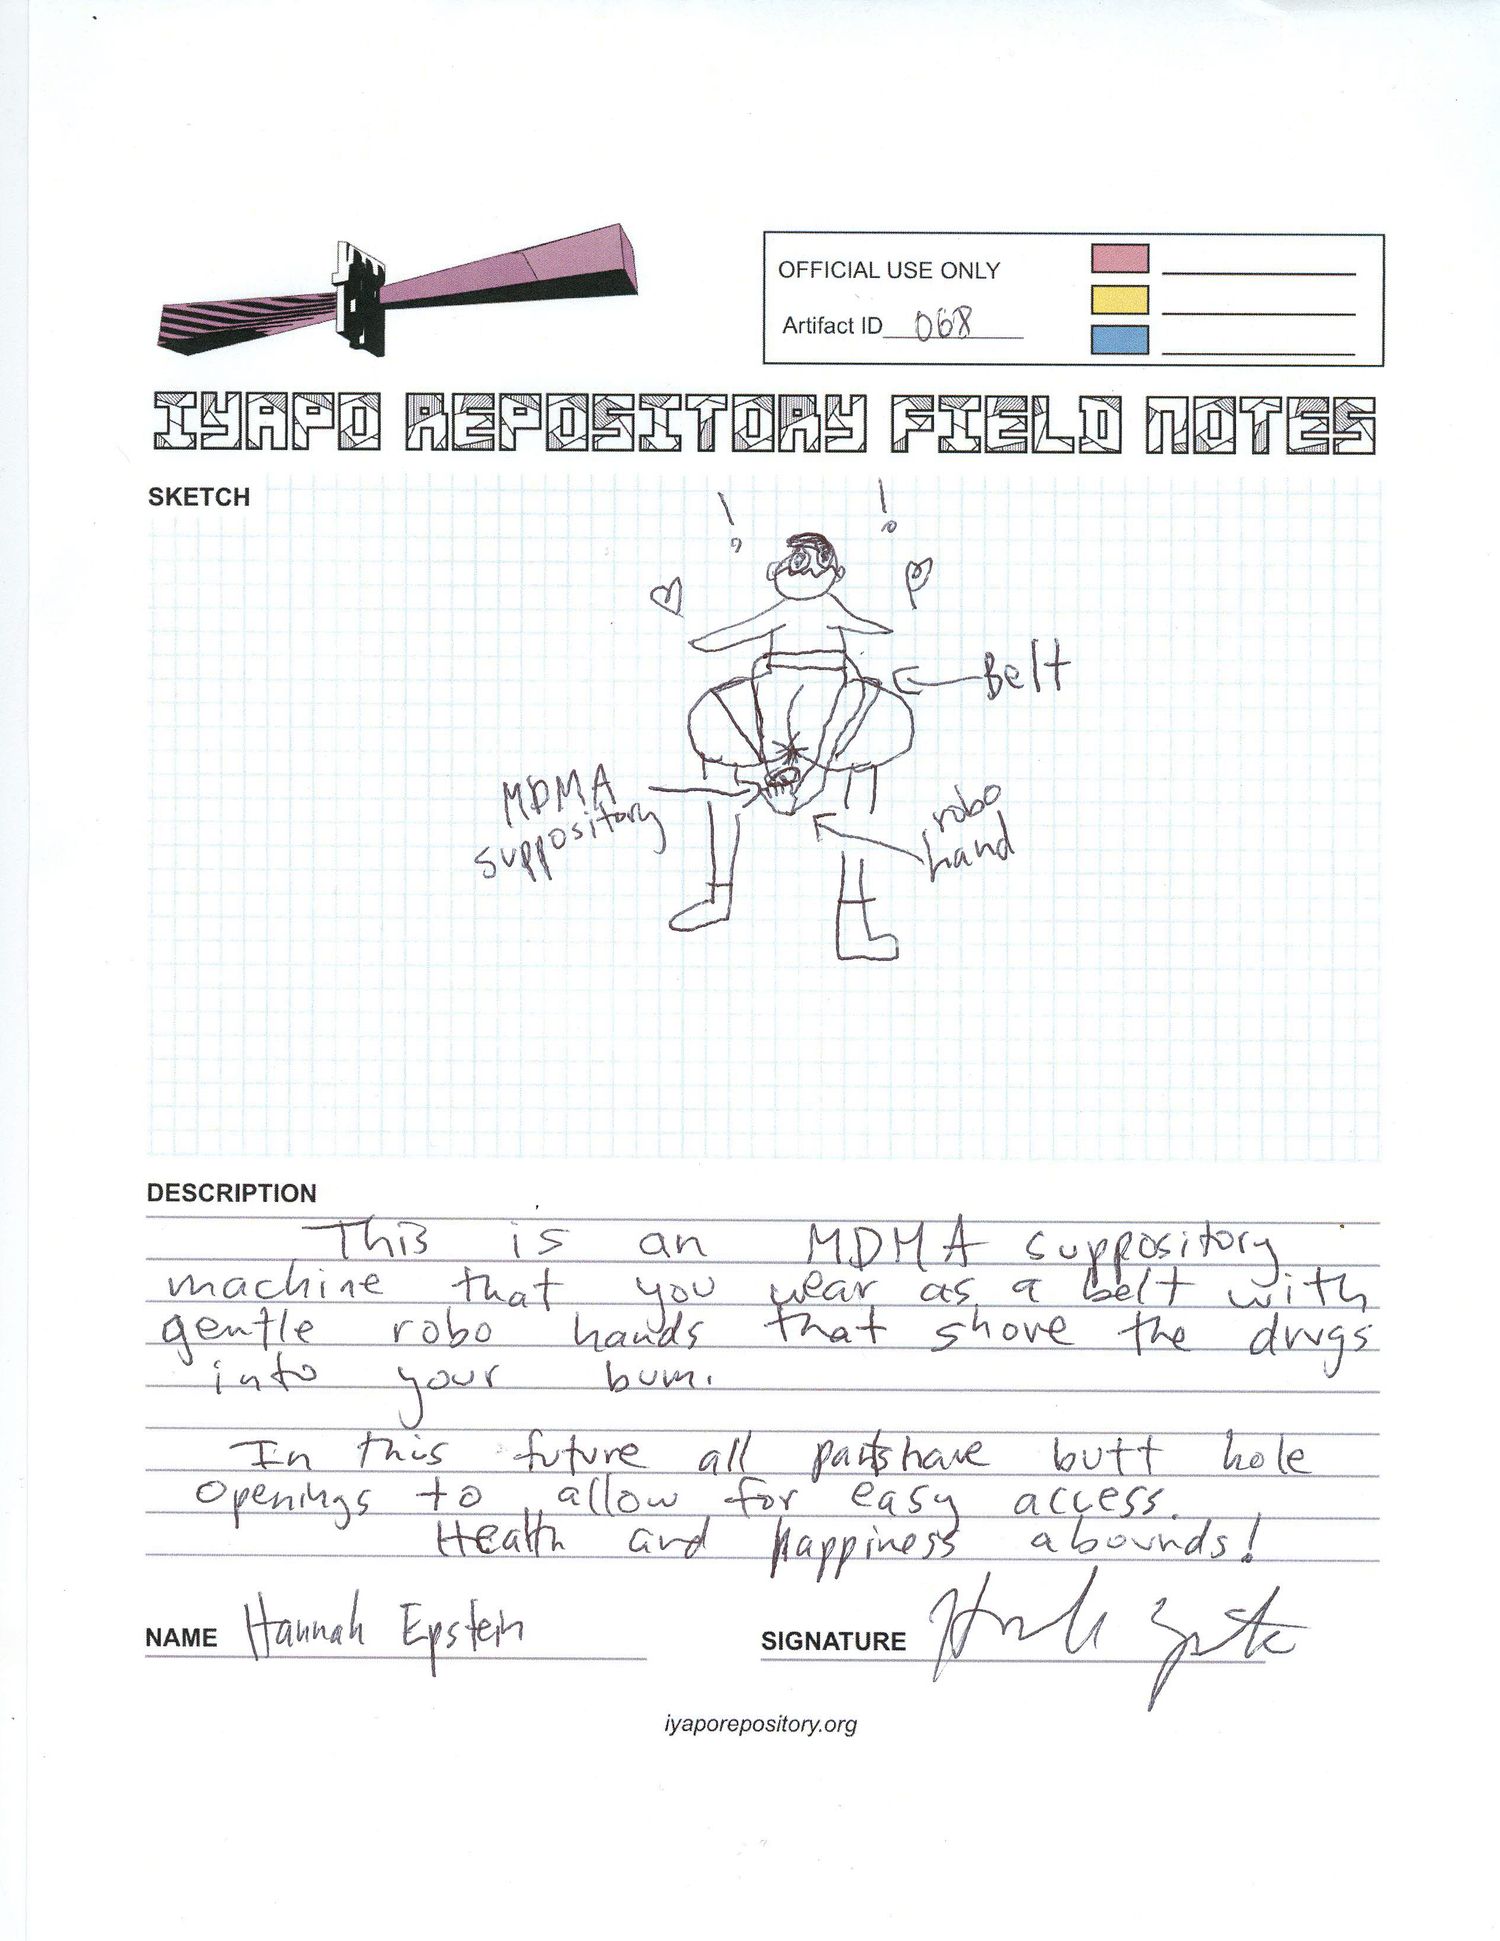 OFFICIAL USE ONLY
Artifact ID 068
IYAPO REPOSITORY FIELD NOTES
SKETCH
! !
Belt
MDMA
suppository
robo
hand
DESCRIPTION
This is an MDMA suppository
machine that you wear as a belt with
gentle robo hands that shove the drugs
into your bum.
In this future all pants have butt hole
openings to allow for easy access.
Health and happiness abounds!
NAME Hannah Epstein
SIGNATURE Hannah Epstein
iyaporepository.org